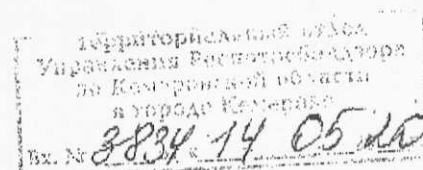 территориальный отдел
Управления Роспотребнадзора
по Кемеровской области
в городе Кемерово
Вх. № 3834 14 05